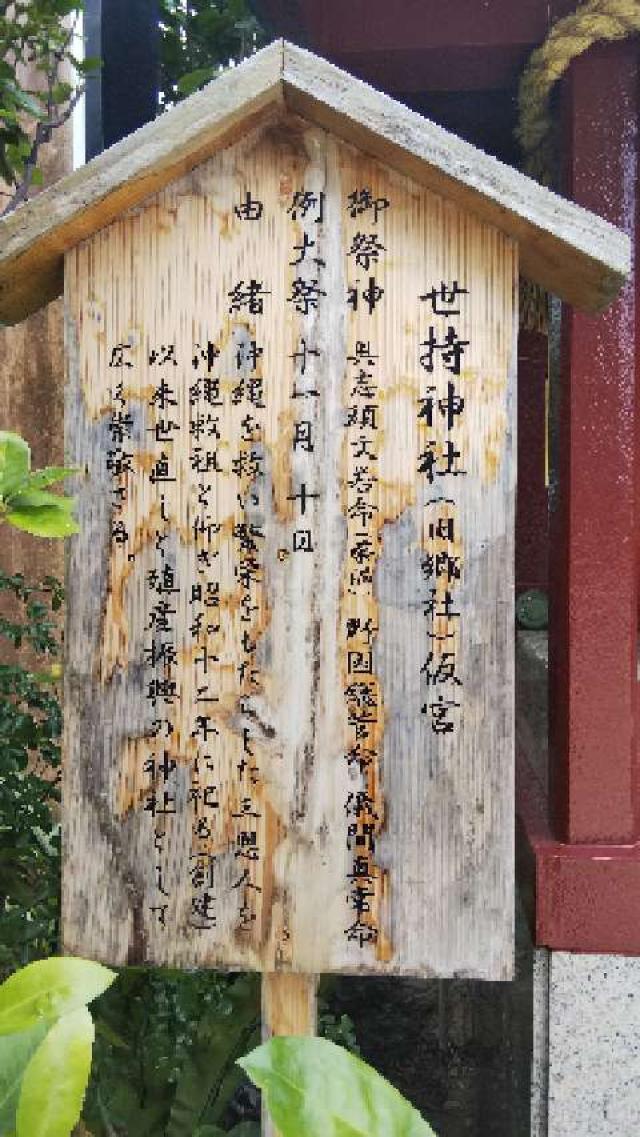 世持神社（旧郷社）仮宮
御祭神 具志頭文若命（蔡温） 野国総菅命 儀間真常命
例大祭 十一月十日
由緒 沖縄を救い繁栄をもたらした三恩人を
沖縄救祖と仰ぎ昭和十二年に祀る（創建）
以来世直しと殖産振興の神社として
広く崇敬さる。